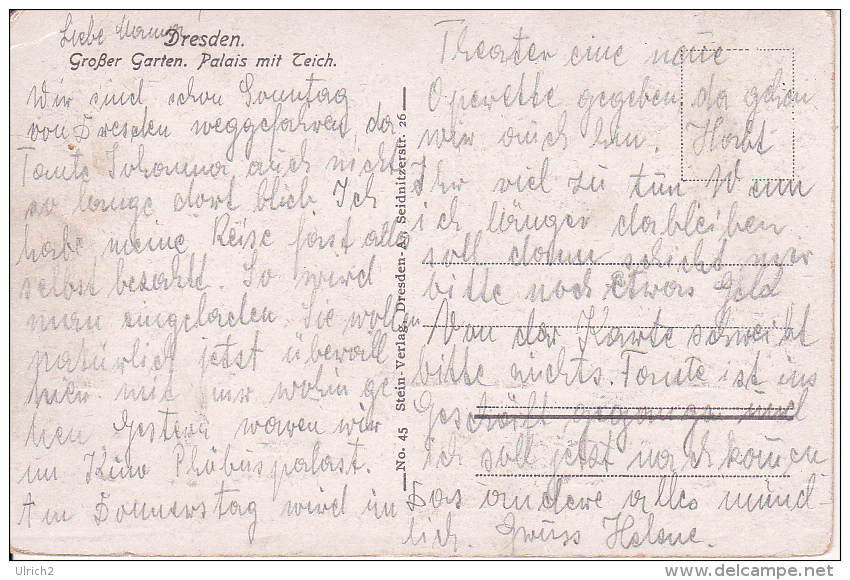 Liebe Mama
Dresden.
Großer Garten. Palais mit Teich.
Wir sind schon Sonntag
von Dresden weggefahren, da
Tante Johanna auch nicht
so lange dort blieb Ich
habe meine Reise fast alles
selbst bezahlt. So wird
man eingeladen. Sie wollen
natürlich jetzt überall
hier mit mir wohin ge
hen Gestern waren wir
im Kino Phöbuspalast.
Am Donnerstag wird im
No. 45 Stein-Verlag, Dresden-A., Seidnitzerstr. 26
Theater eine neue
Operette gegeben da gehen
wir auch hin. Habt
Ihr viel zu tun Wenn
ich länger dableiben
soll dann schickt mir
bitte noch etwas Geld
Von der Karte schreibt
bitte nichts. Tante ist ins
Geschäft gegangen und
ich soll jetzt nachkommen
Das andere alles münd-
lich. Gruss Helene.
Ulrich2
delcampe.net